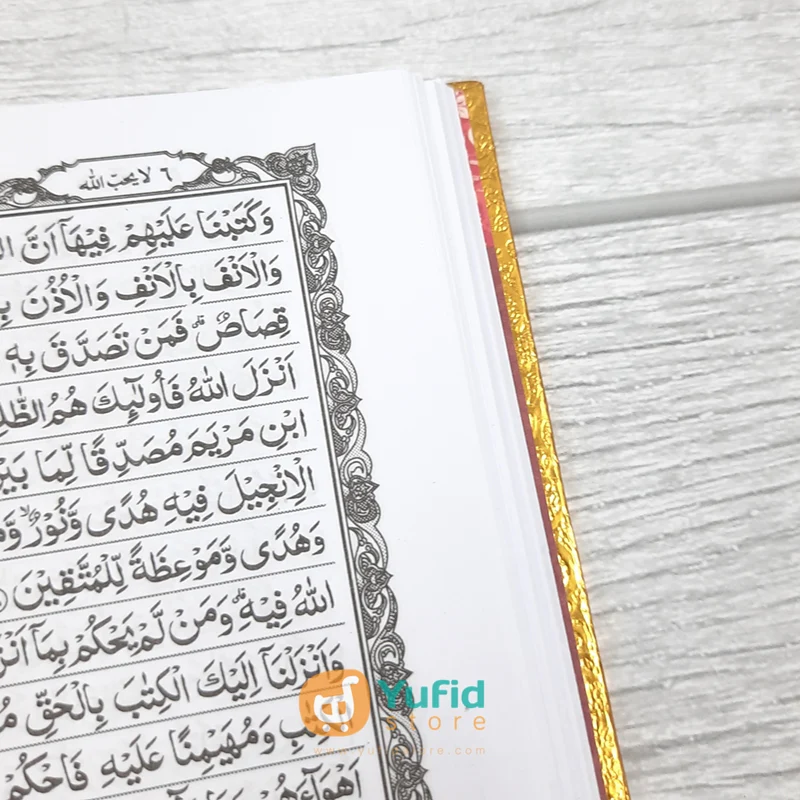 ٦ لا يحب الله
وَكَتَبْنَا عَلَيْهِمْ فِيْهَآ اَنَّ
وَالْاَنْفَ بِالْاَنْفِ وَالْاُذُنَ
قِصَاصٌۗ فَمَنْ تَصَدَّقَ بِهٖ
اَنْزَلَ اللّٰهُ فَاُولٰۤىِٕكَ هُمُ الظّٰلِ
ابْنِ مَرْيَمَ مُصَدِّقًا لِّمَا بَيْ
الْاِنْجِيْلَ فِيْهِ هُدًى وَّنُوْرٌۙ
وَهُدًى وَّمَوْعِظَةً لِّلْمُتَّقِيْنَ
اللّٰهُ فِيْهِۗ وَمَنْ لَّمْ يَحْكُمْ بِمَآ اَنْزَ
وَاَنْزَلْنَآ اِلَيْكَ الْكِتٰبَ بِالْحَقِّ
وَمُهَيْمِنًا عَلَيْهِ فَاحْكُمْ
اَهْوَاۤءَهُمْ
Yufid
store
www.yufidstore.com